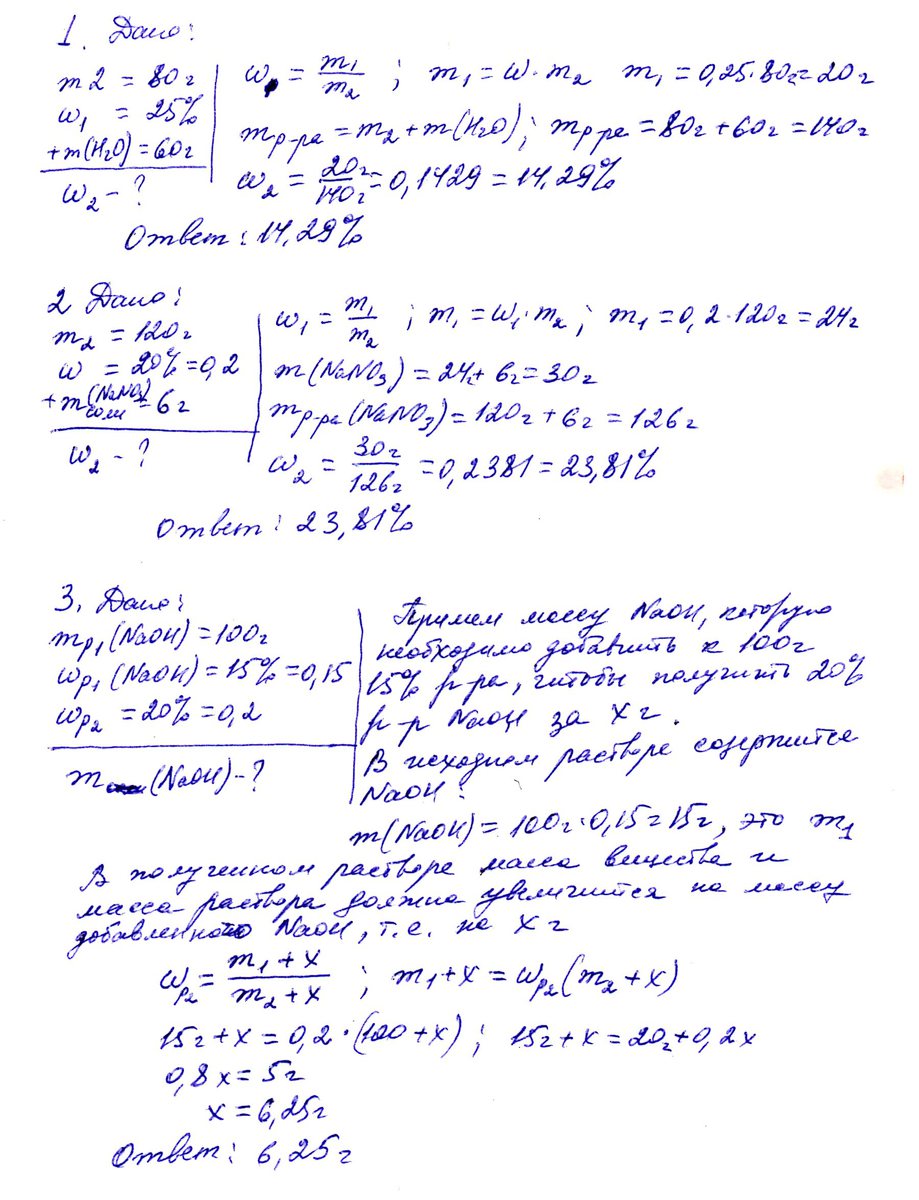 1. Дано:
m2 = 80г
ω1 = 25%
+m(H2O) = 60г
ω2 - ?
ω = m1/m2 ; m1 = ω·m2 m1 = 0,25·80г = 20г
mр-ра = m2 + m(H2O); mр-ра = 80г + 60г = 140г
ω2 = 20г/140г = 0,1429 = 14,29%
Ответ: 14,29%
2 Дано:
m2 = 120г
ω = 20% = 0,2
+m(NaNO3) соли = 6г
ω2 - ?
ω1 = m1/m2 ; m1 = ω1·m2 ; m1 = 0,2·120г = 24г
m(NaNO3) = 24г + 6г = 30г
mр-ра(NaNO3) = 120г + 6г = 126г
ω2 = 30г/126г = 0,2381 = 23,81%
Ответ: 23,81%
3. Дано:
mр1(NaOH) = 100г
ωр1(NaOH) = 15% = 0,15
ωр2 = 20% = 0,2
m (NaOH) - ?
Примем массу NaOH, которую
необходимо добавить к 100г
15% р-ра, чтобы получить 20%
р-р NaOH за x г.
В исходном растворе содержится
NaOH:
m(NaOH) = 100г·0,15 = 15г, это m1
В полученном растворе масса вещества и
масса раствора должна увеличится на массу
добавленного NaOH, т.е. на x г
ωр2 = m1 + x/m2 + x ; m1 + x = ωр2(m2 + x)
15г + x = 0,2·(100 + x) ; 15г + x = 20г + 0,2x
0,8x = 5г
x = 6,25г
Ответ: 6,25г